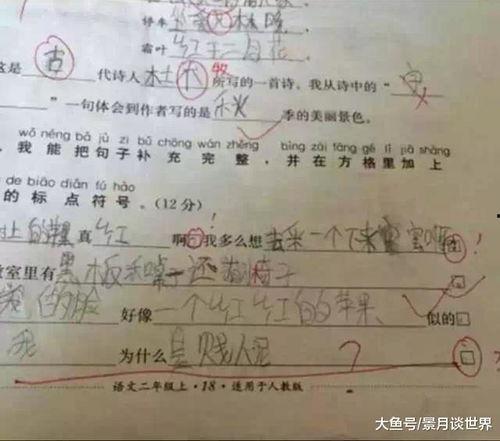 停车
霜叶红于二月花
这是 古 代诗人 杜 所写的一首诗。我从诗中的“
”一句体会到作者写的是 秋 季的美丽景色。
wǒ néng bǎ jù zi bǔ chōng wán zhěng bìng zài fāng gé lǐ jiā shàng
我能把句子补充完整,并在方格里加上
de biāo diǎn fú hào
的标点符号。(12分)
上的苹果 真 红 啊 我多么想 去采一个下来
教室里有 黑板和桌子还有椅子
的脸 好像 一个红红的苹果 似的
我 为什么 是 人呢
语文二年级上·18·适用于人教版
大鱼号/景月谈世界